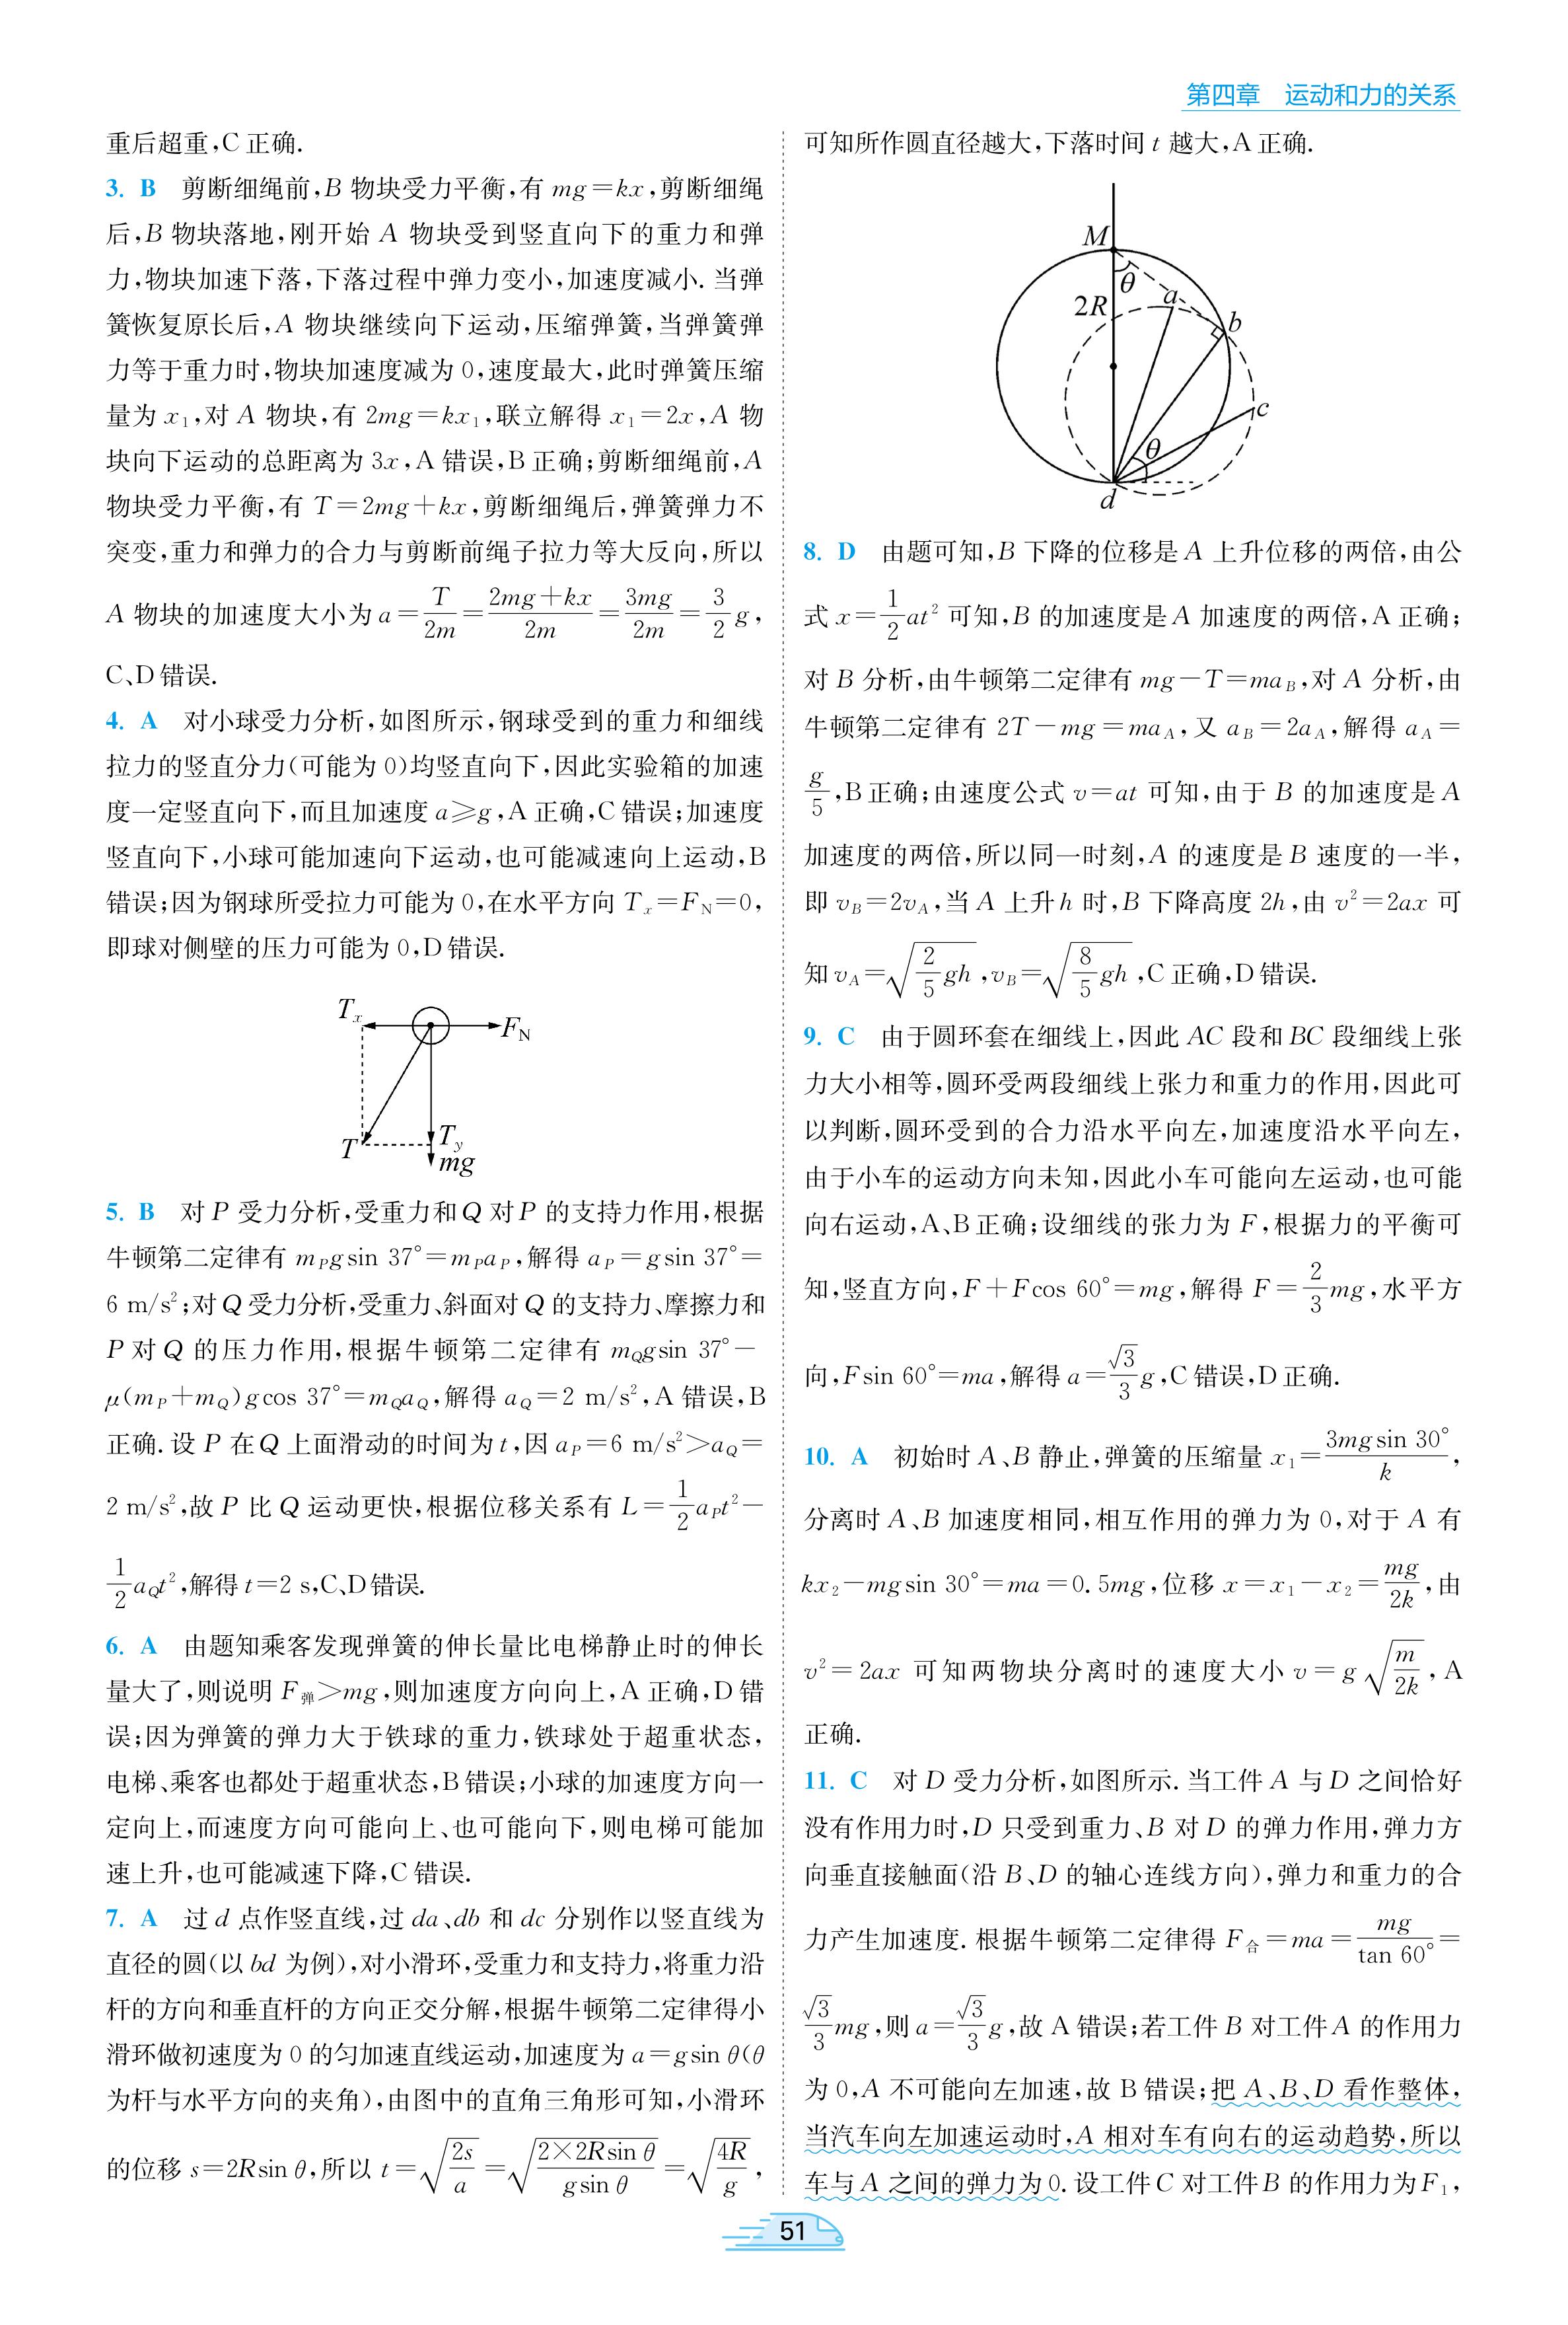 第四章 运动和力的关系
重后超重,C 正确.
3. B 剪断细绳前,B 物块受力平衡,有 mg=kx,剪断细绳
后,B 物块落地,刚开始 A 物块受到竖直向下的重力和弹
力,物块加速下落,下落过程中弹力变小,加速度减小. 当弹
簧恢复原长后,A 物块继续向下运动,压缩弹簧,当弹簧弹
力等于重力时,物块加速度减为 0,速度最大,此时弹簧压缩
量为 x₁,对 A 物块,有 2mg=kx₁,联立解得 x₁=2x,A 物
块向下运动的总距离为 3x,A 错误,B 正确;剪断细绳前,A
物块受力平衡,有 T=2mg+kx,剪断细绳后,弹簧弹力不
突变,重力和弹力的合力与剪断前绳子拉力等大反向,所以
A 物块的加速度大小为 a=T/2m=(2mg+kx)/2m=3mg/2m=3/2 g,
C、D 错误.
4. A 对小球受力分析,如图所示,钢球受到的重力和细线
拉力的竖直分力(可能为 0)均竖直向下,因此实验箱的加速
度一定竖直向下,而且加速度 a⩾g,A 正确,C 错误;加速度
竖直向下,小球可能加速向下运动,也可能减速向上运动,B
错误;因为钢球所受拉力可能为 0,在水平方向 Tₓ=F_N=0,
即球对侧壁的压力可能为 0,D 错误.
Tₓ
F_N
T
T_y
mg
5. B 对 P 受力分析,受重力和 Q 对 P 的支持力作用,根据
牛顿第二定律有 m_P g sin 37°=m_P a_P,解得 a_P=g sin 37°=
6 m/s²;对 Q 受力分析,受重力、斜面对 Q 的支持力、摩擦力和
P 对 Q 的压力作用,根据牛顿第二定律有 m_Q g sin 37°−
μ(m_P+m_Q)g cos 37°=m_Q a_Q,解得 a_Q=2 m/s²,A 错误,B
正确. 设 P 在 Q 上面滑动的时间为 t,因 a_P=6 m/s²>a_Q=
2 m/s²,故 P 比 Q 运动更快,根据位移关系有 L=1/2 a_P t²−
1/2 a_Q t²,解得 t=2 s,C、D 错误.
6. A 由题知乘客发现弹簧的伸长量比电梯静止时的伸长
量大了,则说明 F弹>mg,则加速度方向向上,A 正确,D 错
误;因为弹簧的弹力大于铁球的重力,铁球处于超重状态,
电梯、乘客也都处于超重状态,B 错误;小球的加速度方向一
定向上,而速度方向可能向上、也可能向下,则电梯可能加
速上升,也可能减速下降,C 错误.
7. A 过 d 点作竖直线,过 da、db 和 dc 分别作以竖直线为
直径的圆(以 bd 为例),对小滑环,受重力和支持力,将重力沿
杆的方向和垂直杆的方向正交分解,根据牛顿第二定律得小
滑环做初速度为 0 的匀加速直线运动,加速度为 a=g sin θ(θ
为杆与水平方向的夹角),由图中的直角三角形可知,小滑环
的位移 s=2R sin θ,所以 t=√(2s/a)=√(2×2R sin θ/g sin θ)=√(4R/g),
可知所作圆直径越大,下落时间 t 越大,A 正确.
M
θ
a
2R
b
c
θ
d
8. D 由题可知,B 下降的位移是 A 上升位移的两倍,由公
式 x=1/2 at² 可知,B 的加速度是 A 加速度的两倍,A 正确;
对 B 分析,由牛顿第二定律有 mg−T=ma_B,对 A 分析,由
牛顿第二定律有 2T−mg=ma_A,又 a_B=2a_A,解得 a_A=
g/5,B 正确;由速度公式 v=at 可知,由于 B 的加速度是 A
加速度的两倍,所以同一时刻,A 的速度是 B 速度的一半,
即 v_B=2v_A,当 A 上升 h 时,B 下降高度 2h,由 v²=2ax 可
知 v_A=√(2/5 gh),v_B=√(8/5 gh),C 正确,D 错误.
9. C 由于圆环套在细线上,因此 AC 段和 BC 段细线上张
力大小相等,圆环受两段细线上张力和重力的作用,因此可
以判断,圆环受到的合力沿水平向左,加速度沿水平向左,
由于小车的运动方向未知,因此小车可能向左运动,也可能
向右运动,A、B 正确;设细线的张力为 F,根据力的平衡可
知,竖直方向,F+F cos 60°=mg,解得 F=2/3 mg,水平方
向,F sin 60°=ma,解得 a=√3/3 g,C 错误,D 正确.
10. A 初始时 A、B 静止,弹簧的压缩量 x₁=3mg sin 30°/k,
分离时 A、B 加速度相同,相互作用的弹力为 0,对于 A 有
kx₂−mg sin 30°=ma=0.5mg,位移 x=x₁−x₂=mg/2k,由
v²=2ax 可知两物块分离时的速度大小 v=g√(m/2k),A
正确.
11. C 对 D 受力分析,如图所示. 当工件 A 与 D 之间恰好
没有作用力时,D 只受到重力、B 对 D 的弹力作用,弹力方
向垂直接触面(沿 B、D 的轴心连线方向),弹力和重力的合
力产生加速度. 根据牛顿第二定律得 F合=ma=mg/tan 60°=
√3/3 mg,则 a=√3/3 g,故 A 错误;若工件 B 对工件 A 的作用力
为 0,A 不可能向左加速,故 B 错误;把 A、B、D 看作整体,
当汽车向左加速运动时,A 相对车有向右的运动趋势,所以
车与 A 之间的弹力为 0. 设工件 C 对工件 B 的作用力为 F₁,
51